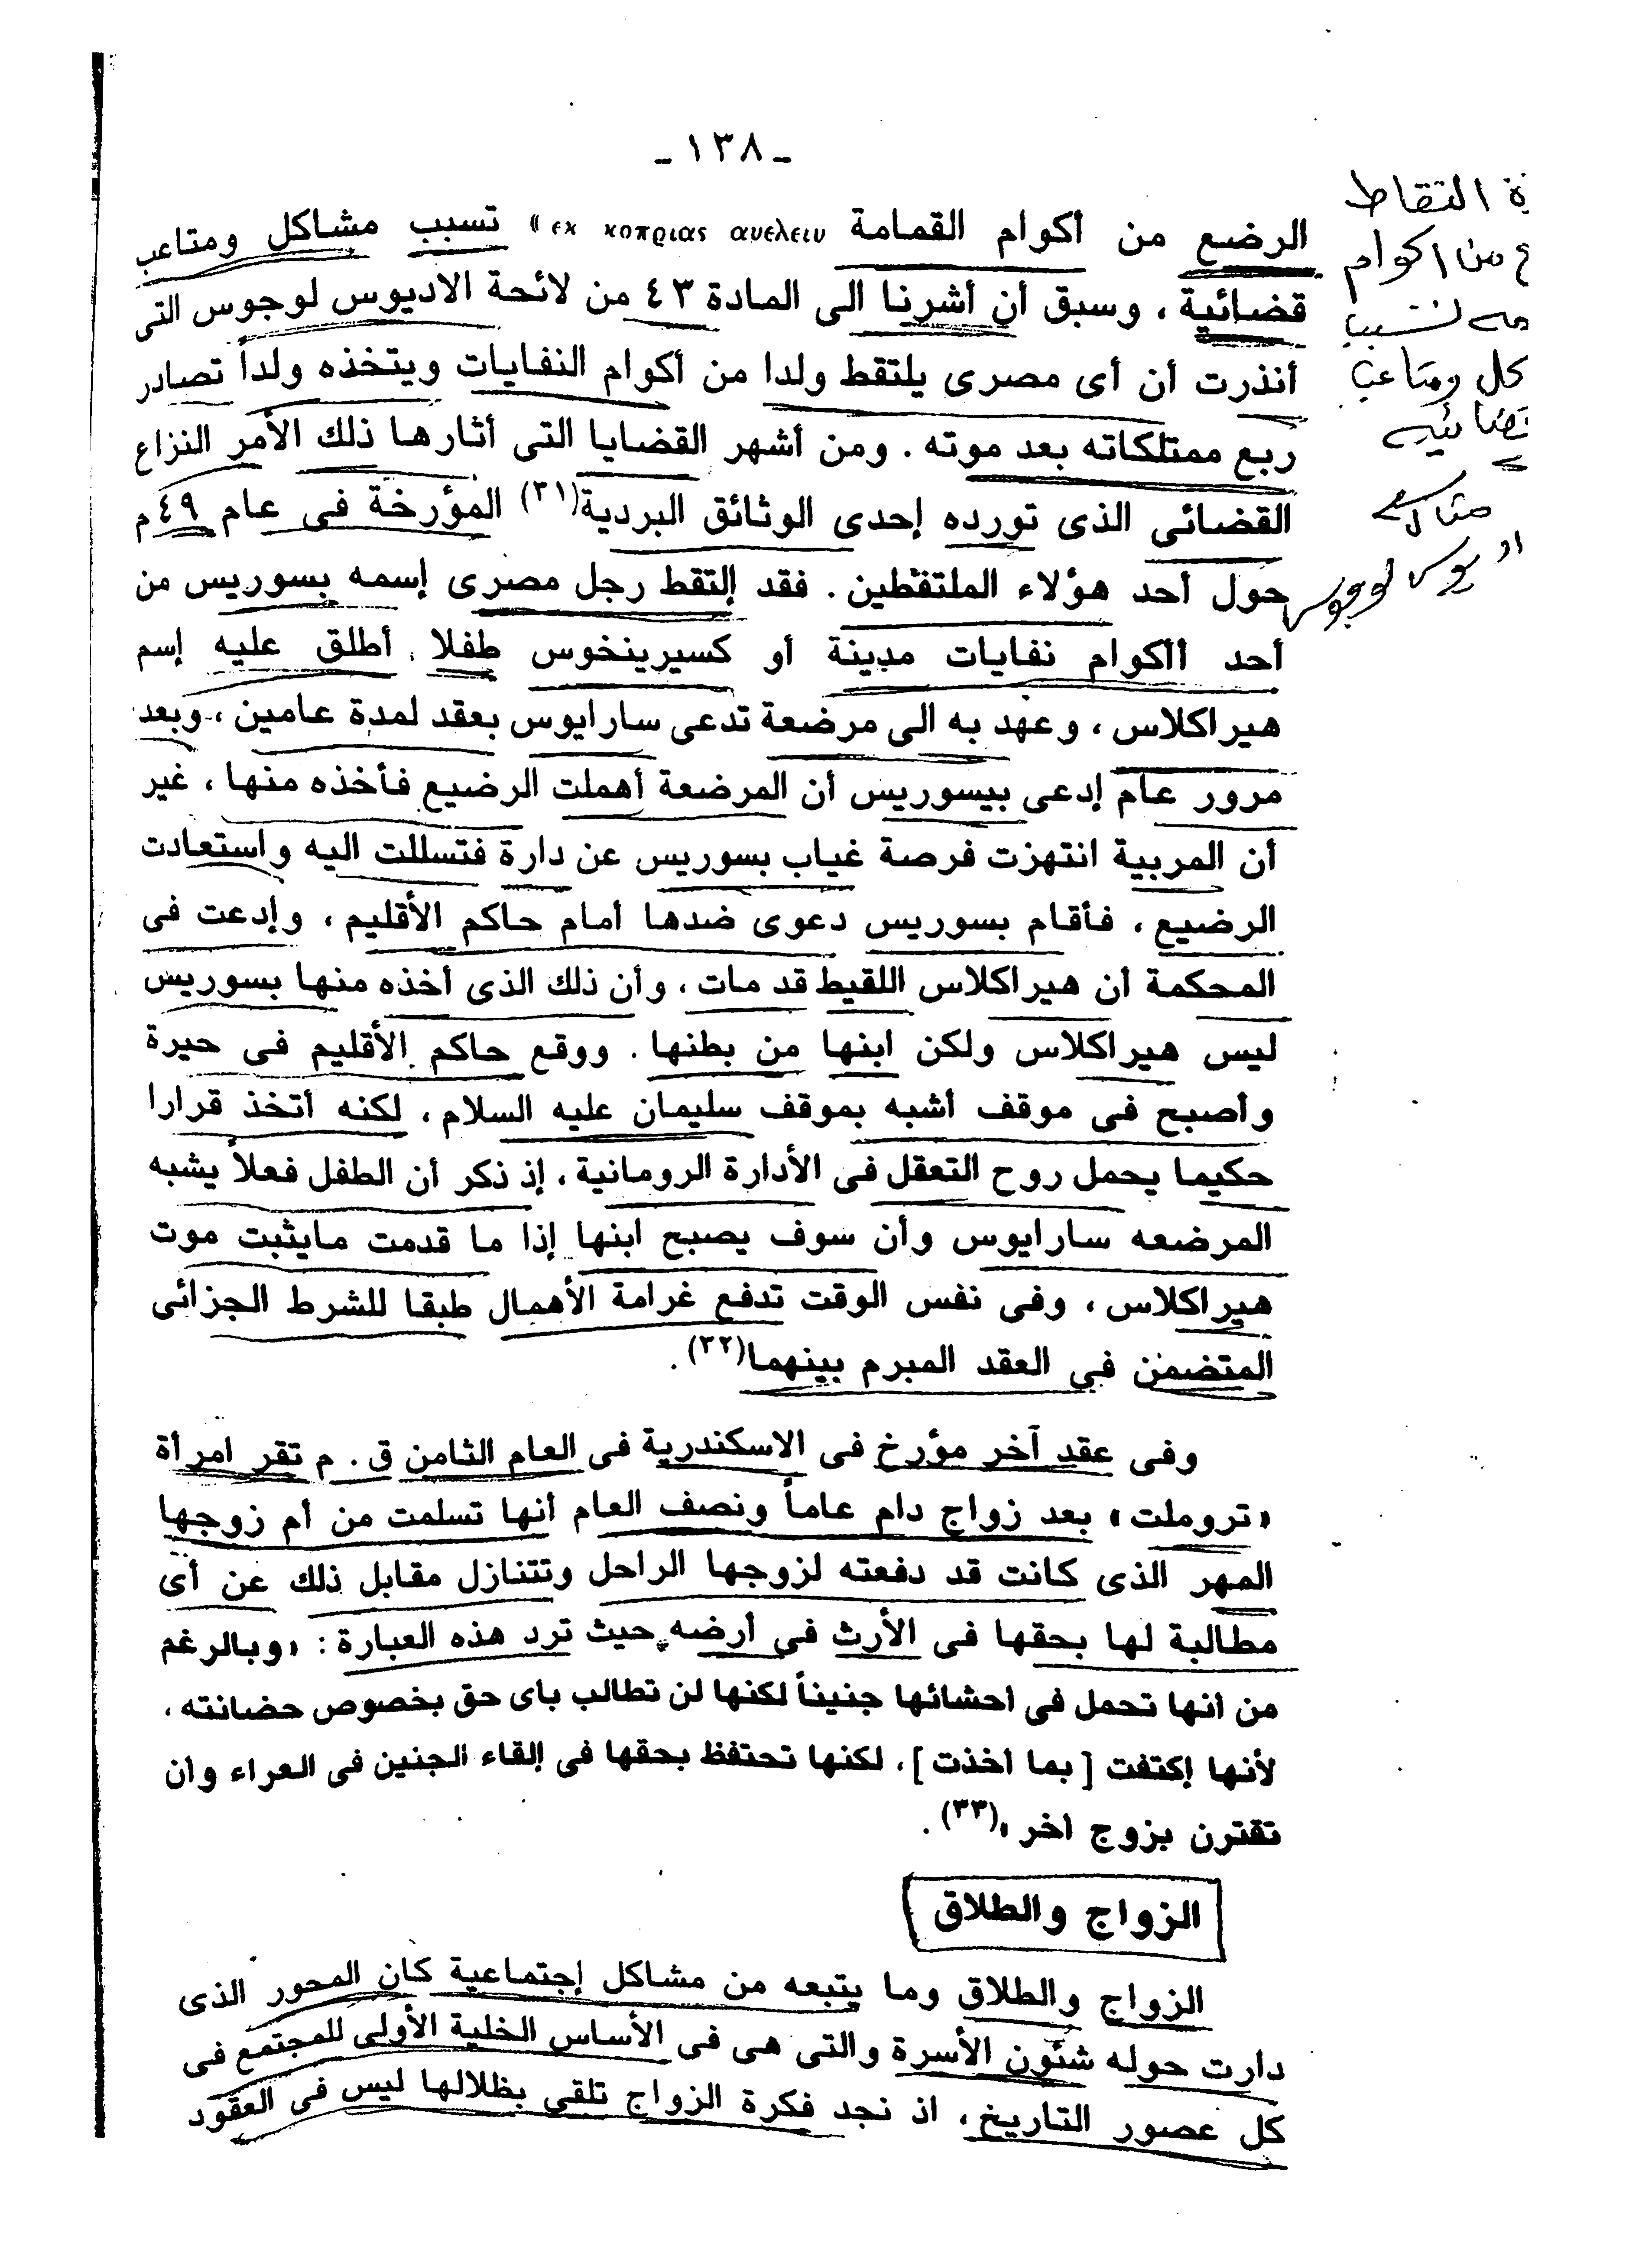 ـ ١٣٨ ـ
الرضع من أكوام القمامة εκ κοπριας ανελειν » تسبب مشاكل ومتاعب
قضائية ، وسبق أن أشرنا الى المادة ٤٣ من لائحة الاديوس لوجوس التى
أنذرت أن أى مصرى يلتقط ولدا من أكوام النفايات ويتخذه ولداً تصادر
ربع ممتلكاته بعد موته . ومن أشهر القضايا التى أثارها ذلك الأمر النزاع
القضائى الذى تورده إحدى الوثائق البردية(٣١) المؤرخة فى عام ٤٩ م
حول أحد هؤلاء الملتقطين . فقد إلتقط رجل مصرى إسمه بسوريس من
أحد أأكوام نفايات مدينة أو كسيرينخوس طفلا . أطلق عليه إسم
هيراكلاس ، وعهد به الى مرضعة تدعى سارايوس بعقد لمدة عامين ، وبعد
مرور عام إدعى بيسوريس أن المرضعة أهملت الرضيع فأخذه منها ، غير
أن المربية انتهزت فرصة غياب بسوريس عن دارة فتسللت اليه واستعادت
الرضيع ، فأقام بسوريس دعوى ضدها أمام حاكم الأقليم ، وإدعت فى
المحكمة أن هيراكلاس اللقيط قد مات ، وأن ذلك الذى أخذه منها بسوريس
ليس هيراكلاس ولكن ابنها من بطنها . ووقع حاكم الأقليم فى حيرة
وأصبح فى موقف أشبه بموقف سليمان عليه السلام ، لكنه أتخذ قرارا
حكيما يحمل روح التعقل فى الأدارة الرومانية ، إذ ذكر أن الطفل فعلاً يشبه
المرضعه سارايوس وأن سوف يصبح ابنها إذا ما قدمت مايثبت موت
هيراكلاس ، وفى نفس الوقت تدفع غرامة الأهمال طبقا للشرط الجزائى
المتضمن في العقد المبرم بينهما(٣٢) .
وفى عقد آخر مؤرخ فى الاسكندرية فى العام الثامن ق . م تقر امرأة
« تروملت » بعد زواج دام عاماً ونصف العام أنها تسلمت من أم زوجها
المهر الذى كانت قد دفعته لزوجها الراحل وتتنازل مقابل ذلك عن أى
مطالبة لها بحقها فى الأرث في أرضه حيث ترد هذه العبارة : « وبالرغم
من أنها تحمل فى احشائها جنيناً لكنها لن تطالب باى حق بخصوص حضانته ،
لأنها إكتفت [ بما أخذت ] ، لكنها تحتفظ بحقها فى إلقاء الجنين فى العراء وأن
تقترن بزوج اخر »(٣٣) .
الزواج والطلاق
الزواج والطلاق وما يتبعه من مشاكل إجتماعية كان المحور الذى
دارت حوله شئون الأسرة والتى هى فى الأساس الخلية الأولى للمجتمع فى
كل عصور التاريخ ، اذ نجد فكرة الزواج تلقي بظلالها ليس فى العقود
ة التقاط
ع من اكوام
مه تسبب
كل ومتاعب
قضائيه
مثال
لوجوس